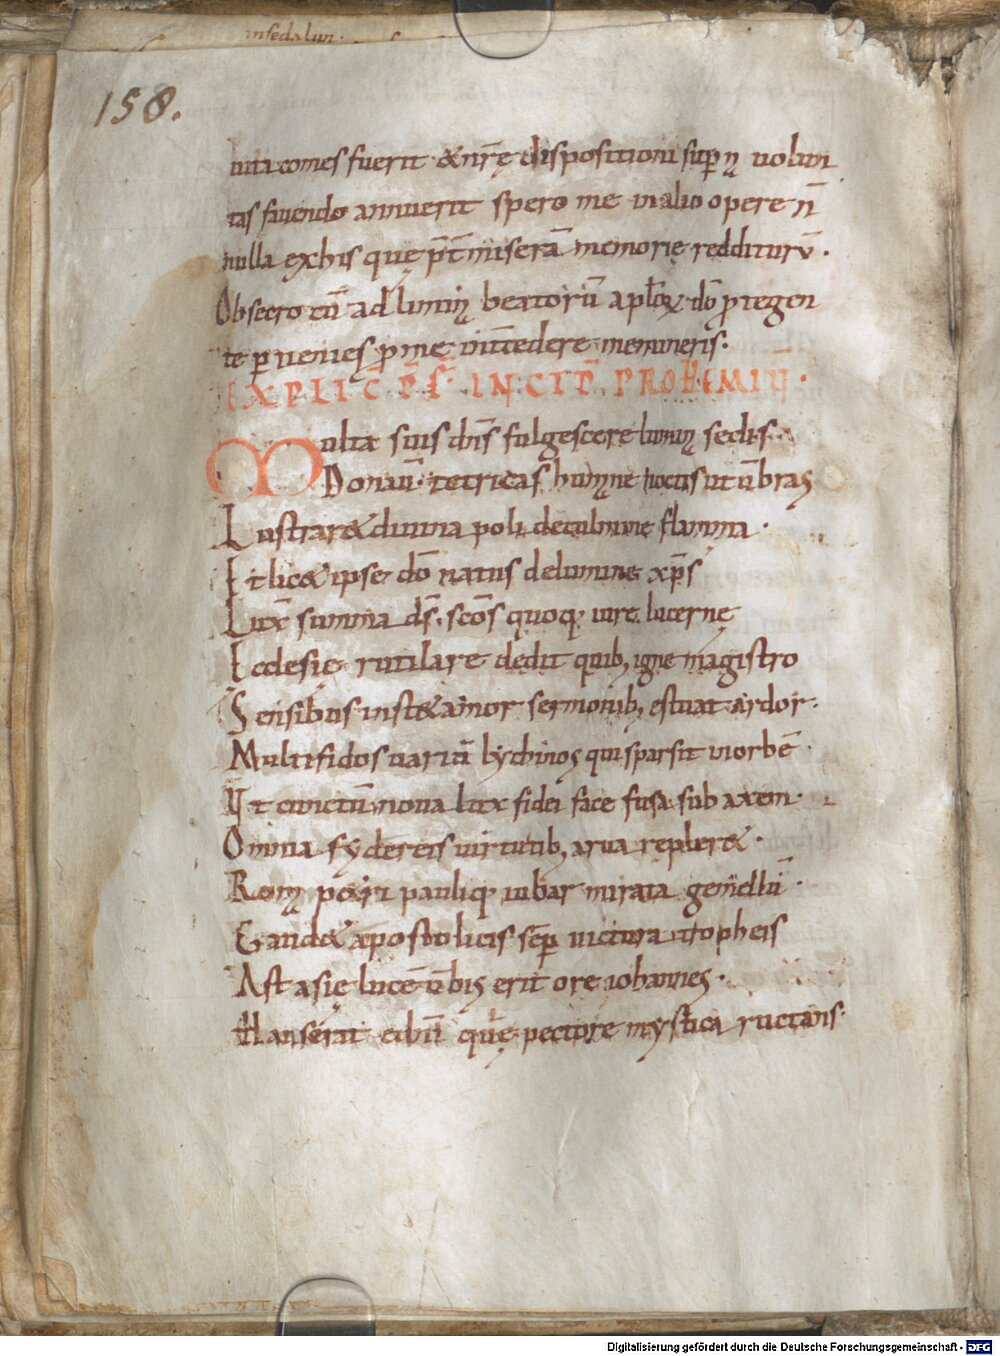 158.
uita comes fuerit & nr̄ę dispositioni supn̨ uolun
tas fauendo annuerit spero me in alio opere n̄
nulla ex his quę p̄t̄miserā memorię redditurū.
Obsecro cū ad limin̨ beatorū aplōꝝ dō protegen
te peruenies pro me intc̄edere memineris.
EXPLIC̄ P̄F̄. INCIP̄ PROHEMIŪ.
Multa suis dn̄s fulgescere limin̨ seclis.
Donauit tetricas humanę noctis ut ūbras
Lustraret diuina poli de culmine flamma.
Et lic& ipse dō natus de lumine xp̄s
Lux summa ds̄. scōs quoq; iure lucerne
Ecclesię rutilare dedit quib; igne magistro
Sensibus inst& amor sermonib; estuat ardor.
Multifidos uariū lychinos qui sparsit in orbē.
Ut cunctū noua lux fidei face fusa sub axem.
Omnia sydereis uirtutib; arua repler&.
Roma petri pauliq; iubar mirata gemellū.
Gaud& apostolicis semp uictura tropheis
Ast asię lucē uerbis erit ore iohannes.
Hauserat &hnī quę pectore mystica ructans.
Digitalisierung gefördert durch die Deutsche Forschungsgemeinschaft - DFG